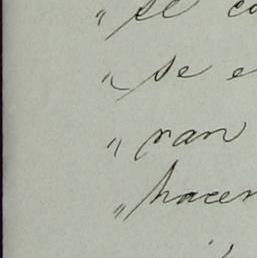 " se co
" se e
" ran
" hacer